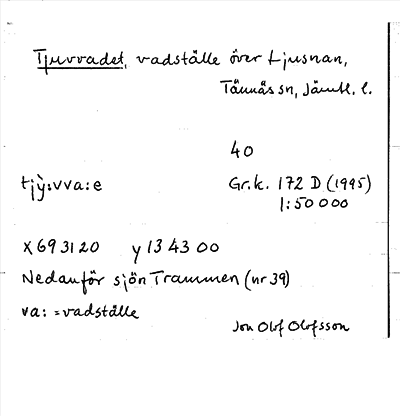 Tjuvvadet, vadställe över Ljusnan,
Tännäs sn, Jämtl. l.
40
tjỳ:vva:e
Gr.k. 172 D (1995)
1:50 000
x 693120 y 134300
Nedanför sjön Trammen (nr 39)
va: = vadställe
Jon Olof Olofsson